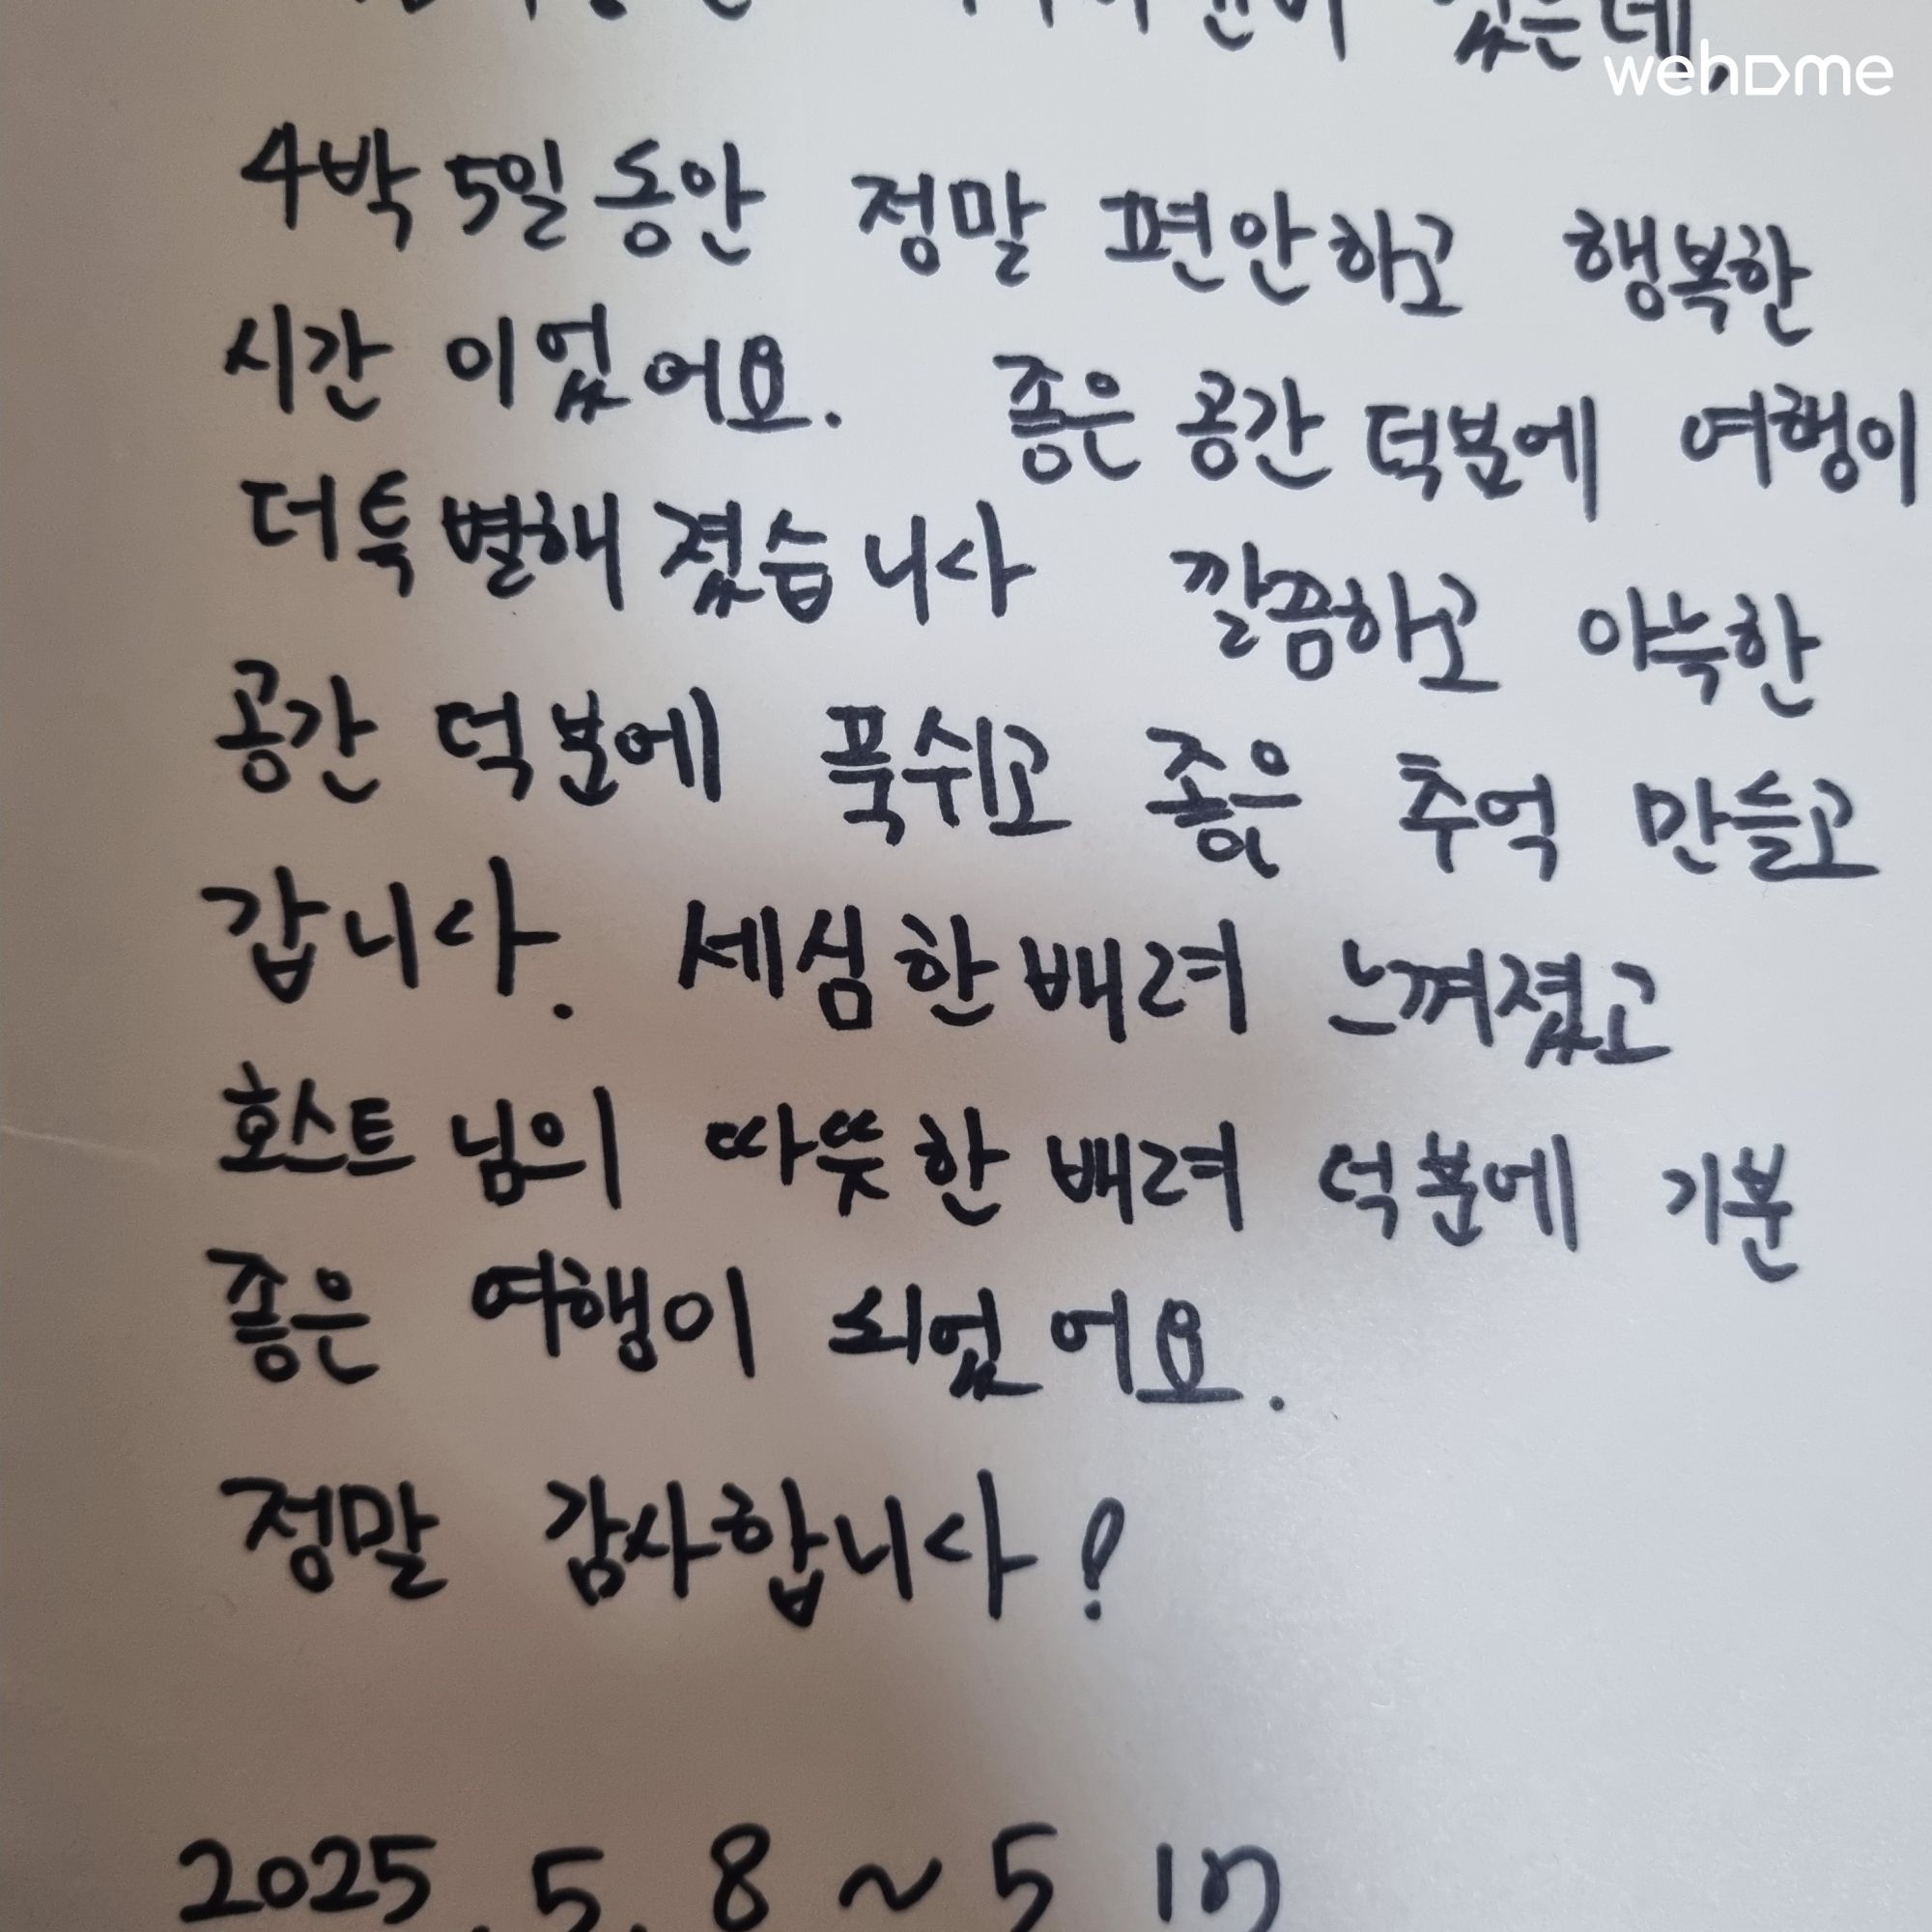 있은데,
wehome
4박 5일 동안 정말 편안하고 행복한
시간 이었어요. 좋은 공간 덕분에 여행이
더 특별해 졌습니다 깔끔하고 아늑한
공간 덕분에 푹쉬고 좋은 추억 만들고
갑니다. 세심한 배려 느껴졌고
호스트님의 따뜻한 배려 덕분에 기분
좋은 여행이 되었어요.
정말 감사합니다!
2025. 5. 8 ~ 5